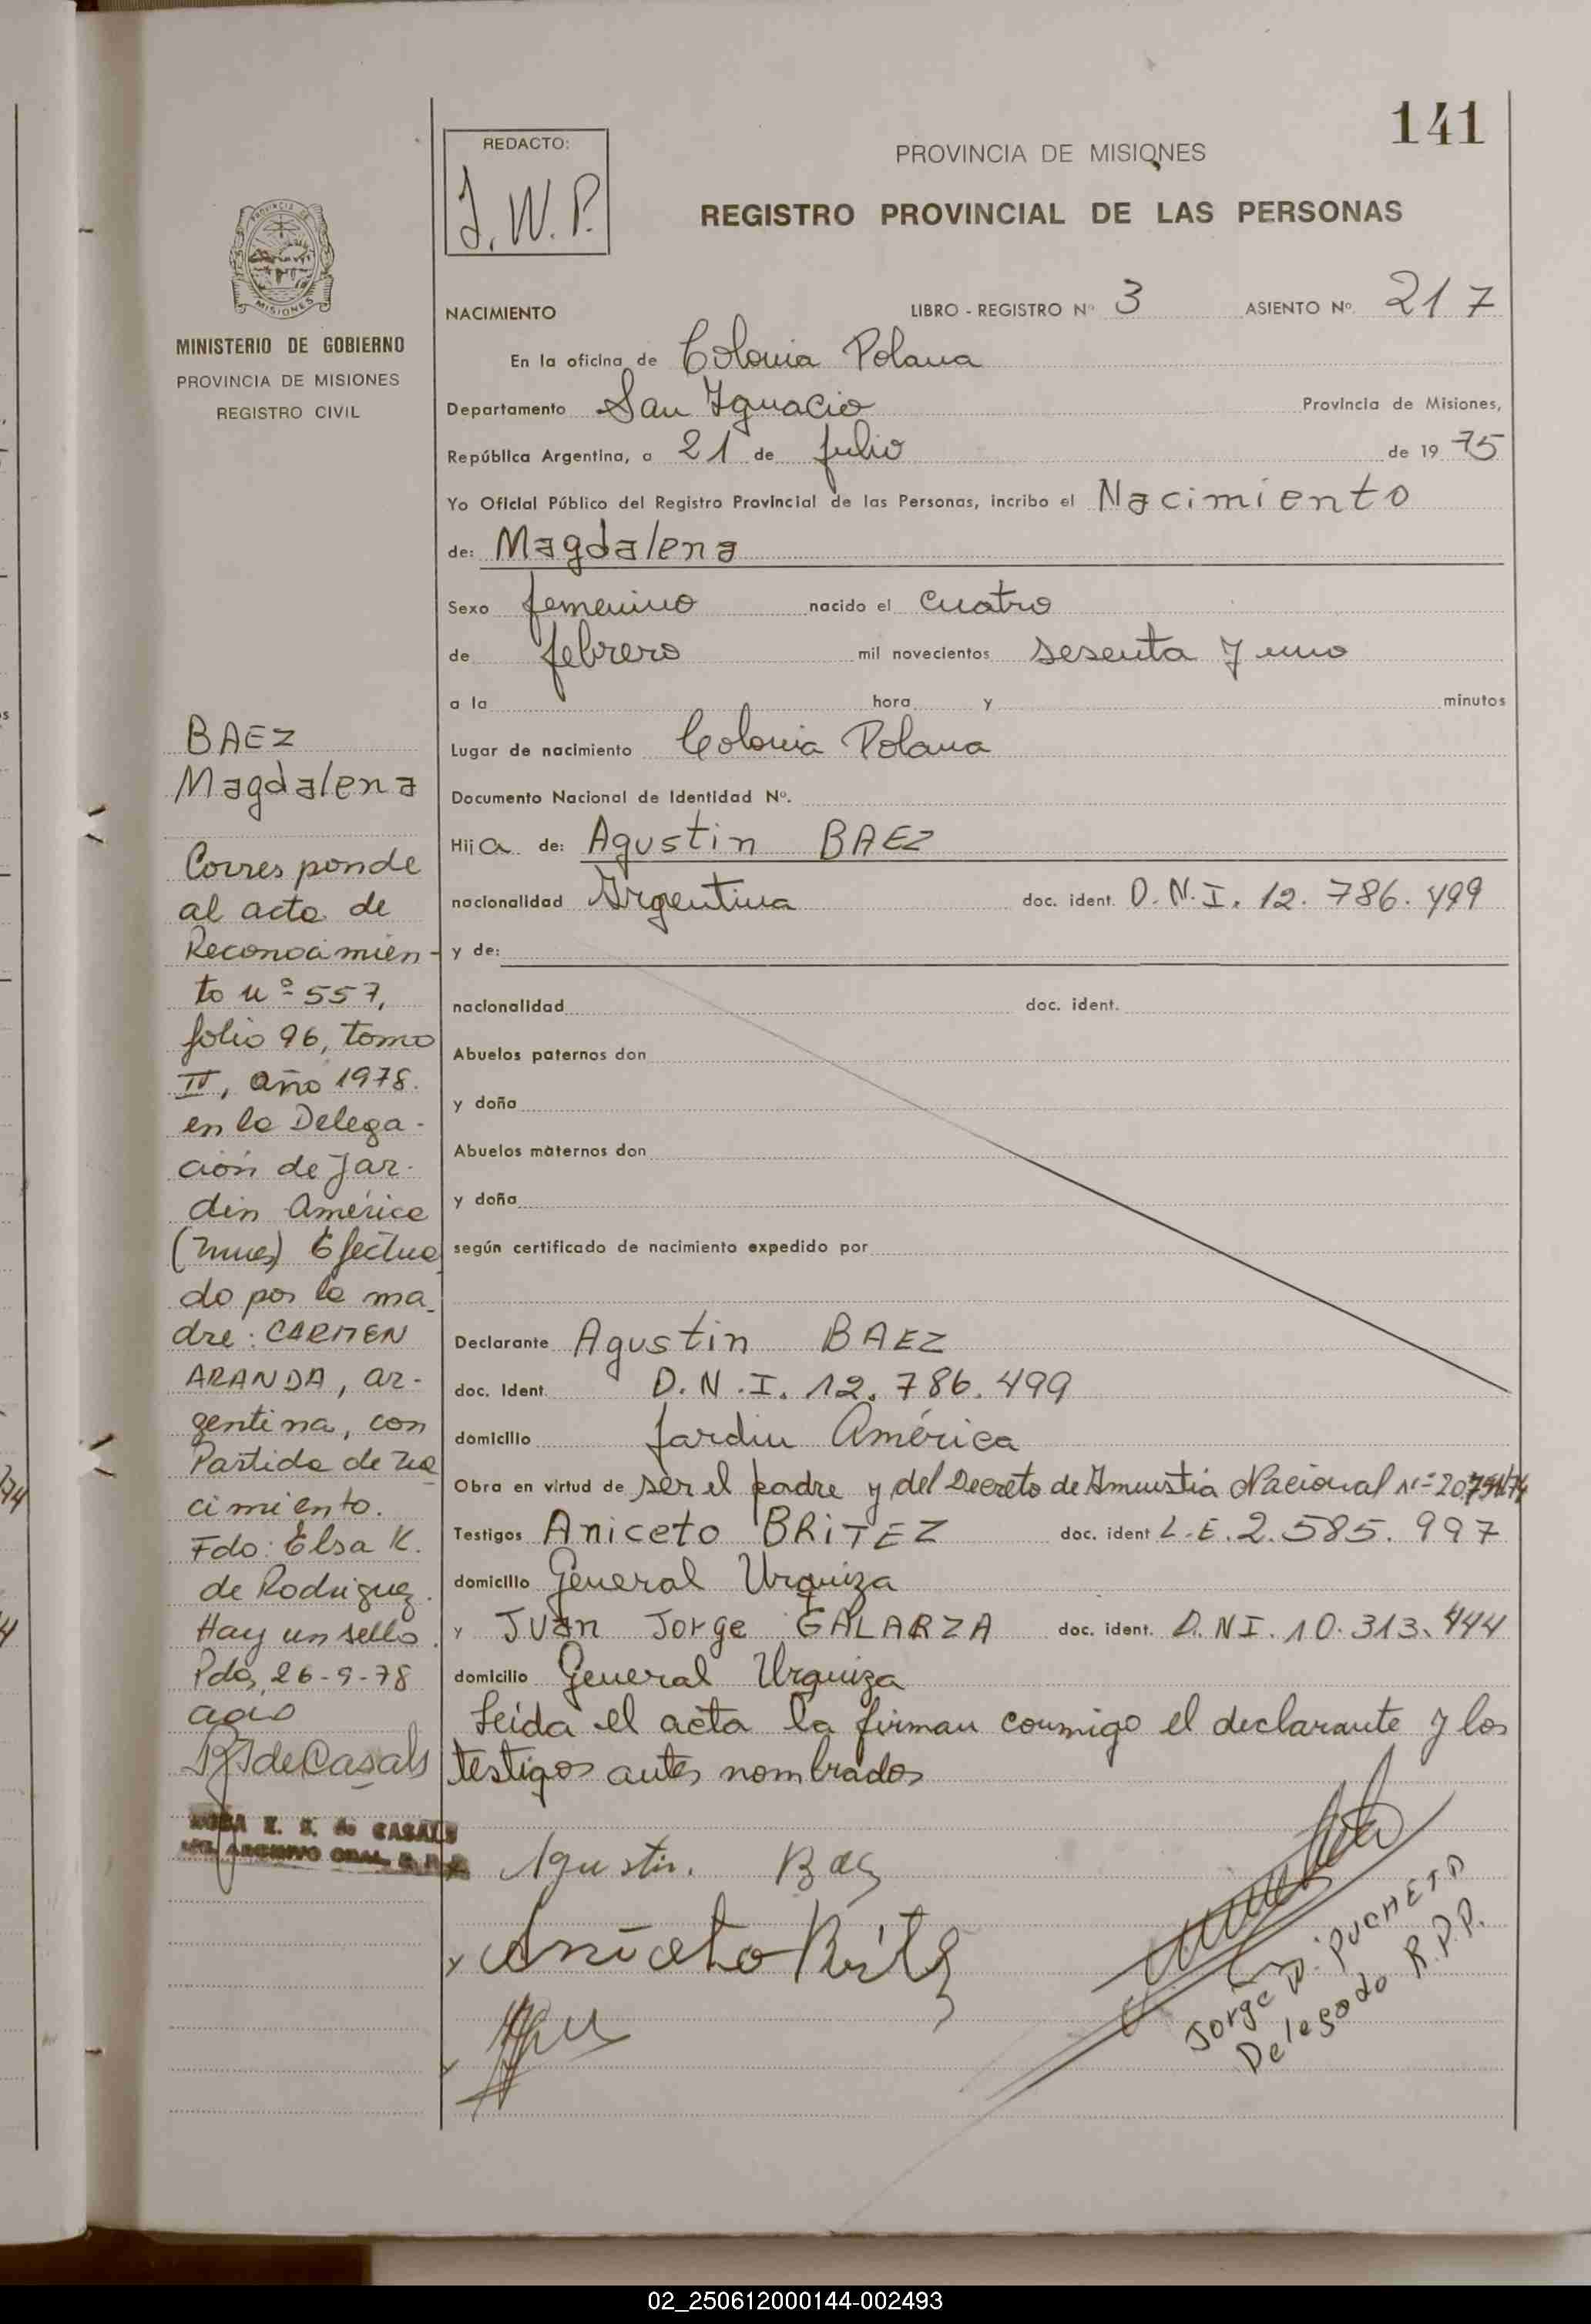 141
REDACTO:
J. W. P.
PROVINCIA DE MISIONES
REGISTRO PROVINCIAL DE LAS PERSONAS
MINISTERIO DE GOBIERNO
PROVINCIA DE MISIONES
REGISTRO CIVIL
NACIMIENTO LIBRO - REGISTRO Nº 3 ASIENTO Nº 217
En la oficina de Colonia Polana
Departamento San Ignacio Provincia de Misiones,
República Argentina, a 21 de julio de 19 75
Yo Oficial Público del Registro Provincial de las Personas, incribo el Nacimiento
de: Magdalena
Sexo femenino nacido el cuatro
de febrero mil novecientos sesenta y uno
a la hora y minutos
Lugar de nacimiento Colonia Polana
Documento Nacional de Identidad Nº.
Hija de: Agustin BAEZ
nacionalidad Argentina doc. ident. D.N.I. 12.786.499
y de:
nacionalidad doc. ident.
Abuelos paternos don
y doña
Abuelos maternos don
y doña
según certificado de nacimiento expedido por
Declarante Agustin BAEZ
doc. Ident. D.N.I. 12.786.499
domicilio Jardin América
Obra en virtud de ser el padre y del Decreto de Amnistia Nacional nº
Testigos Aniceto BRITEZ doc. ident L.E. 2.585.997
domicilio General Urquiza
y Juan Jorge GALARZA doc. ident. D.N.I. 10.313.444
domicilio General Urquiza
Leida el acta la firman conmigo el declarante y los
testigos antes nombrados
Agustin. Baez
Aniceto Britez
Jorge D. PUCHETA
Delegado R.P.P.
BAEZ
Magdalena
Corresponde
al acta de
Reconocimien-
to nº 557,
folio 96, tomo
II, año 1978.
en la Delega-
ción de Jar-
din América
(Mnes) Efectua
do por la ma-
dre: CARMEN
ARANDA, ar-
gentina, con
Partida de na
cimiento.
Fdo: Elsa K.
de Rodriguez.
Hay un sello.
Pdas, 26-9-78
R de Casals
ROSA E. S. de CASALS
ARCHIVO GRAL.
02_250612000144-002493